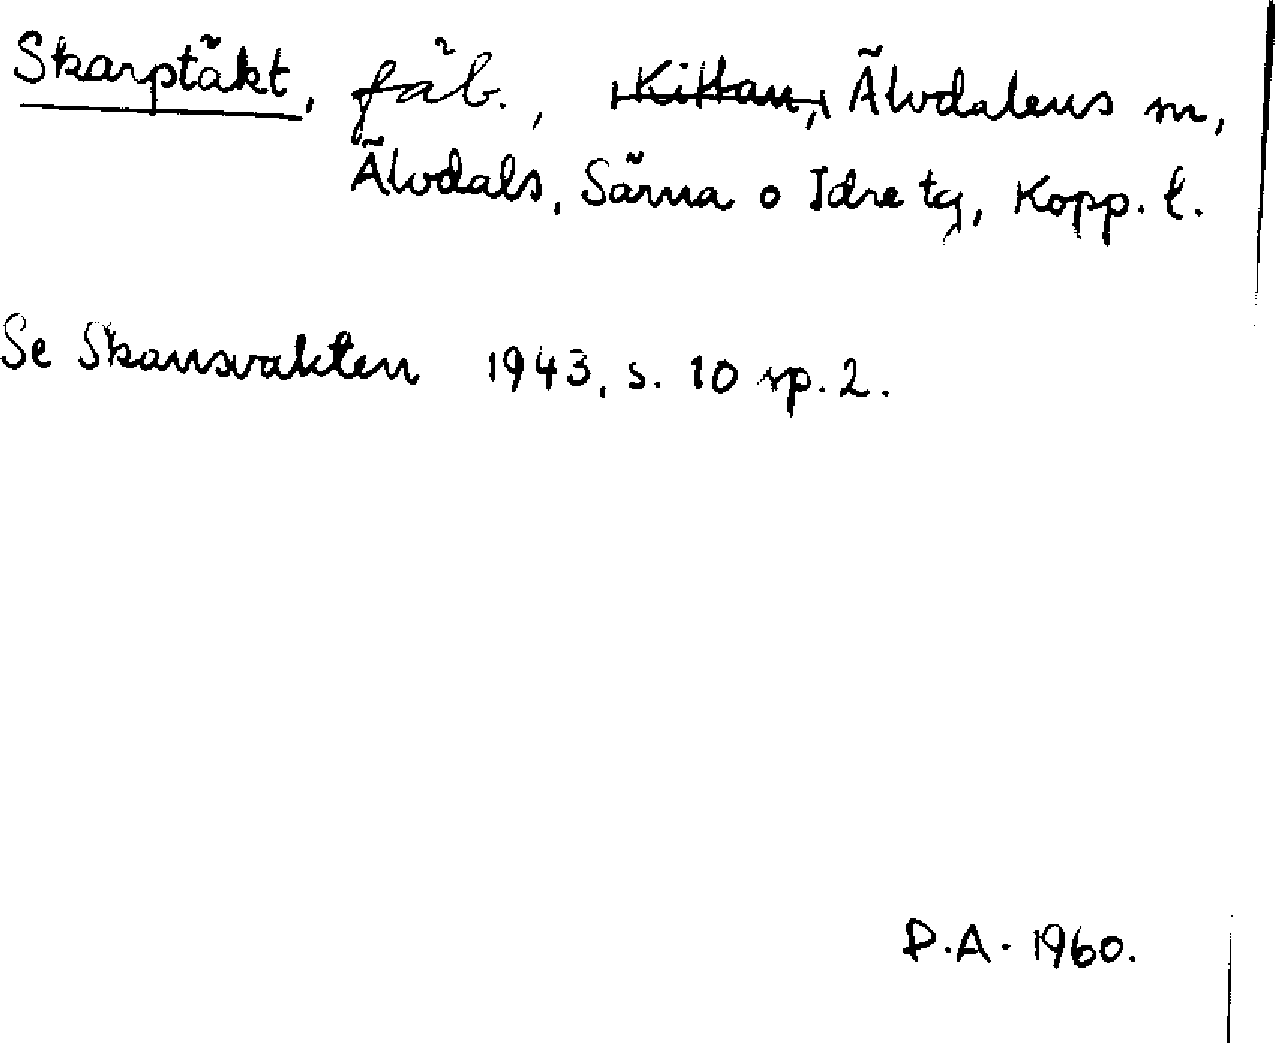 Skarptäkt, fäb., Kittan, Älvdalens m,
Älvdals, Särna o Idre tg, Kopp. l.
Se Skansvakten 1943, s. 10 sp. 2.
D.A. 1960.